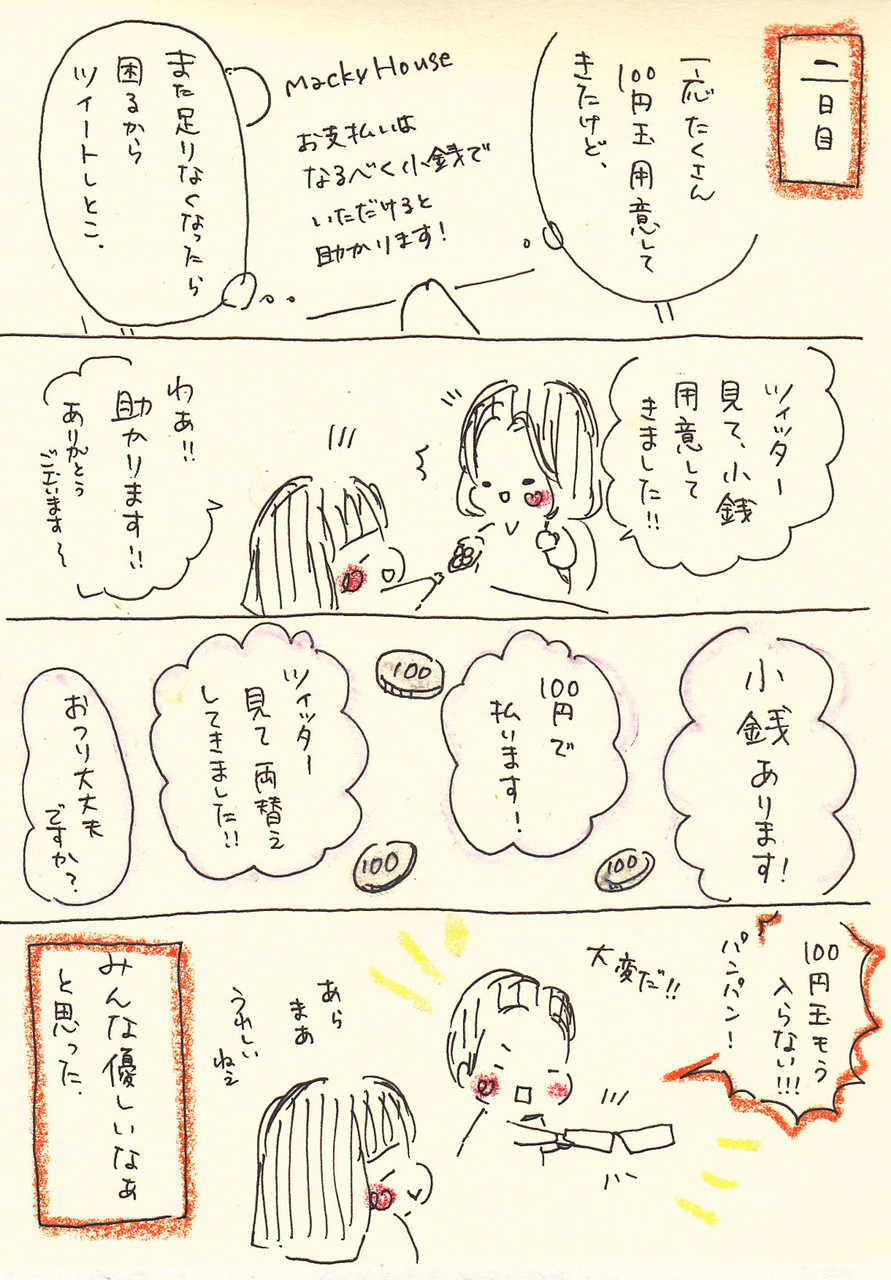 二日目
一応たくさん
100円玉用意して
きたけど、
Macky House
お支払いは
なるべく小銭で
いただけると
助かります!
また足りなくなったら
困るから
ツイートしとこ.
ツイッター
見て、小銭
用意して
きました!!
わぁ!!
助かります!!
ありがとう
ございます〜
小銭あります!
100
100円で
払います!
100
ツイッター
見て両替え
してきました!!
100
おつり大丈夫
ですか?
100円玉もう
入らない!!!
パンパン!
大変だ!!
あら
まあ
うれしい
ねぇ
みんな優しいなぁ
と思った.